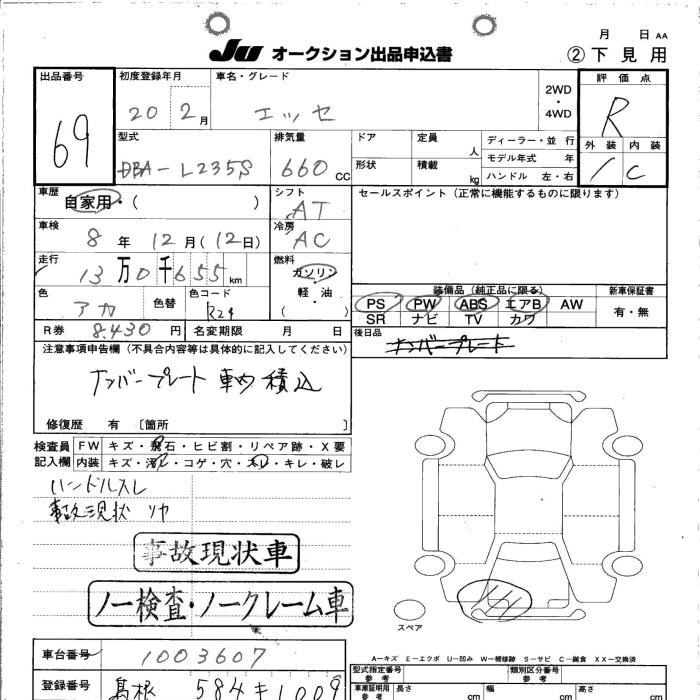 月 日 AA
JU オークション出品申込書 ②下見用
出品番号 初度登録年月 車名・グレード 2WD・4WD 評価点
69 20 2月 エッセ R
型式 排気量 ドア 定員 人 ディーラー・並行 外装 内装
DBA-L235S 660cc 形状 積載 kg モデル年式 年 / C
ハンドル 左・右
車歴 シフト セールスポイント(正常に機能するものに限ります)
自家用・( ) AT
車検 冷房
8年 12月(12日) AC
走行 燃料
13万0千655km ガソリン
軽・油
装備品(純正品に限る) 新車保証書
色 色替 色コード PS PW ABS エアB AW 有・無
アカ R24 SR ナビ TV カワ
R券 8,430円 名変期限 月 日 後日品
ナンバープレート
注意事項申告欄(不具合内容等は具体的に記入してください)
ナンバープレート 車内積込
修復歴 有 〔箇所 〕
検査員 FW キズ・飛石・ヒビ割・リペア跡・X要
記入欄 内装 キズ・汚レ・コゲ・穴・スレ・キレ・破レ
ハンドルスレ
事故現状 リヤ
事故現状車
ノー検査・ノークレーム車
スペア
A-キズ E-エクボ U-凹み W-補修跡 S-サビ C-腐食 XX-交換済
車台番号 1003607 型式指定番号 参考 類別区分番号 参考
登録番号 島根 584 キ 1009 車庫証明用 参考 長さ cm 幅 cm 高さ cm